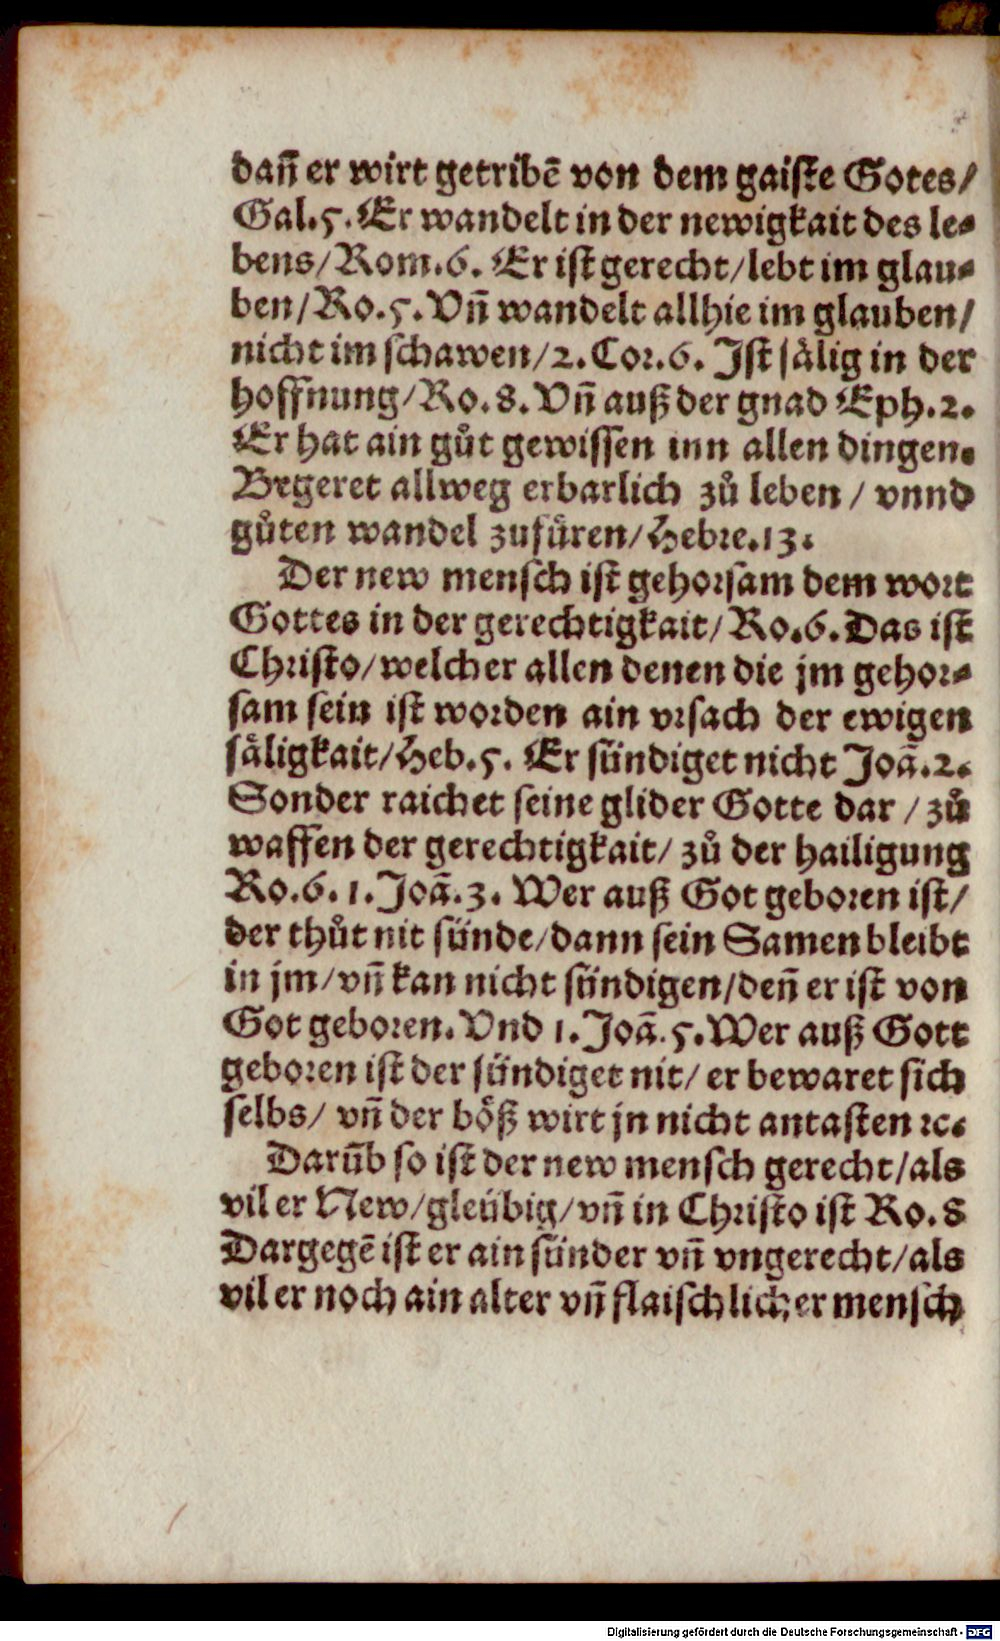 dañ er wirt getribē von dem gaiste Gotes/
Gal.5. Er wandelt in der newigkait des le⸗
bens/Rom.6. Er ist gerecht/lebt im glau⸗
ben/Ro.5. Vñ wandelt allhie im glauben/
nicht im schawen/2.Cor.6. Ist sälig in der
hoffnung/Ro.8. Vñ auß der gnad Eph.2.
Er hat ain gůt gewissen inn allen dingen.
Brgeret allweg erbarlich zů leben / vnnd
gůten wandel zufüren/Hebre.13.
Der new mensch ist gehorsam dem wort
Gottes in der gerechtigkait/Ro.6. Das ist
Christo/welcher allen denen die jm gehor⸗
sam sein ist worden ain vrsach der ewigen
säligkait/Heb.5. Er sündiget nicht Joā.2.
Sonder raichet seine glider Gotte dar / zů
waffen der gerechtigkait/ zů der hailigung
Ro.6. 1. Joā.3. Wer auß Got geboren ist/
der thůt nit sünde/dann sein Samen bleibt
in jm/vñ kan nicht sündigen/deñ er ist von
Got geboren. Vnd 1. Joā.5. Wer auß Gott
geboren ist der sündiget nit/ er bewaret sich
selbs/ vñ der böß wirt jn nicht antasten ꝛc.
Darūb so ist der new mensch gerecht/als
vil er New/gleübig/vñ in Christo ist Ro.8
Dargegē ist er ain sünder vñ vngerecht/als
vil er noch ain alter vñ flaischlicher mensch
Digitalisierung gefördert durch die Deutsche Forschungsgemeinschaft - DFG